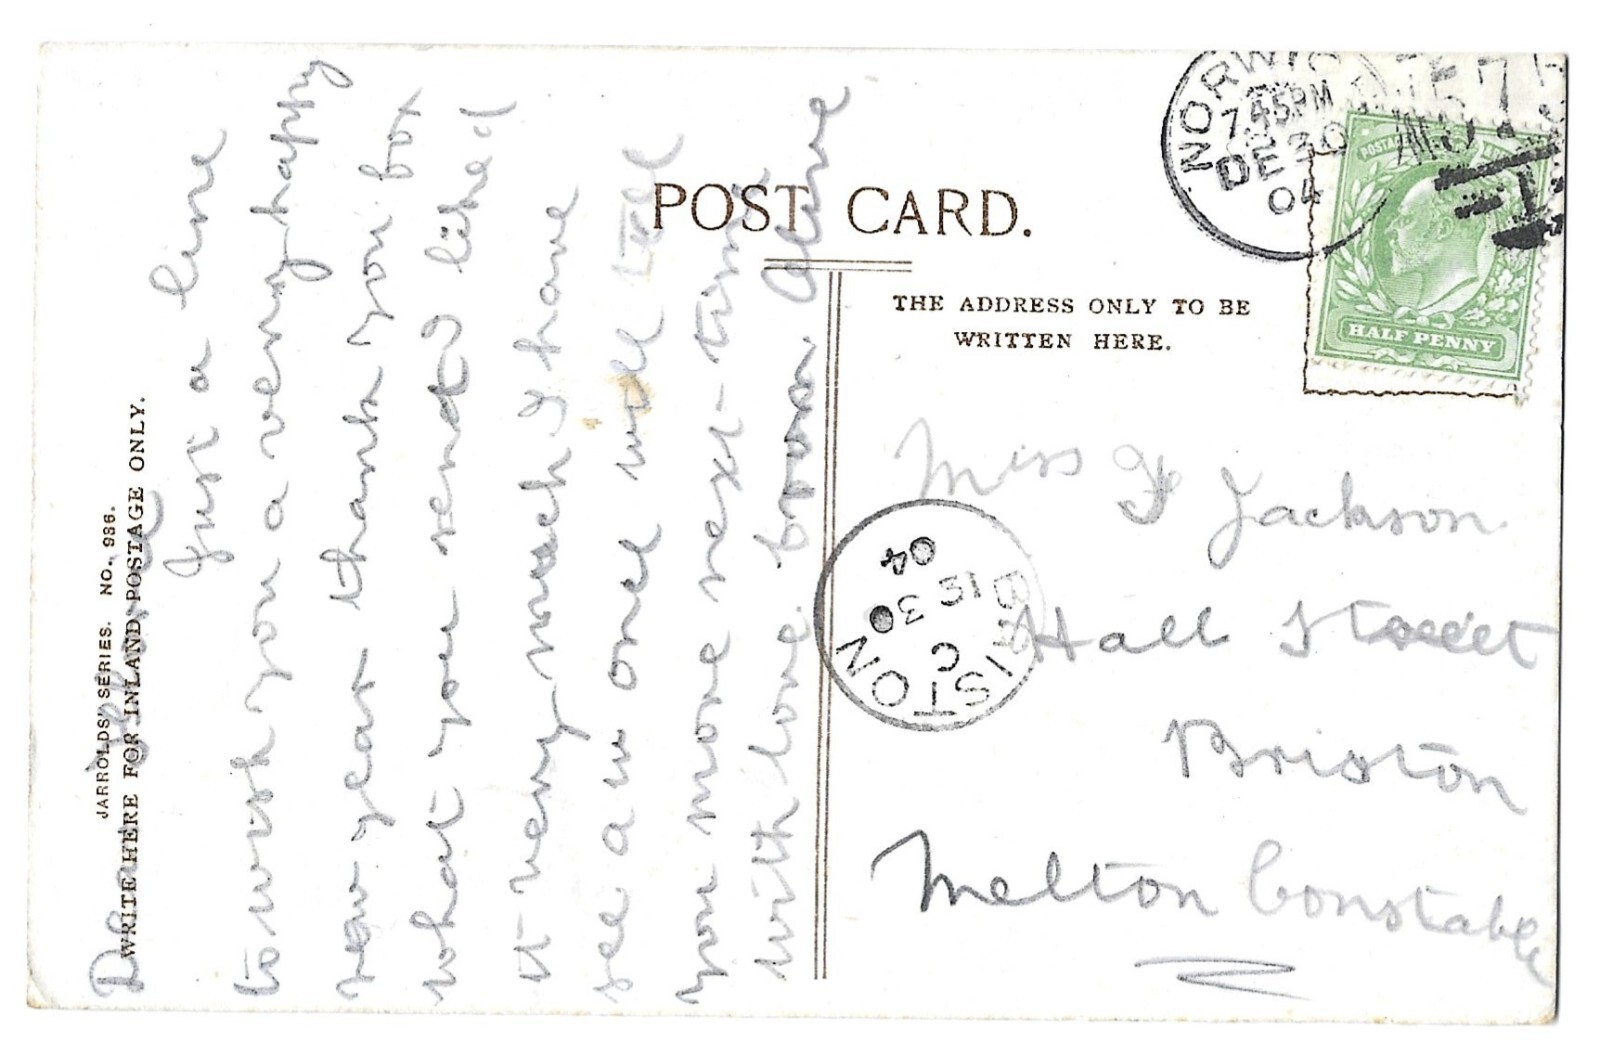 POST CARD.
THE ADDRESS ONLY TO BE
WRITTEN HERE.
JARROLDS' SERIES. NO. 986.
WRITE HERE FOR INLAND POSTAGE ONLY.
Dear
Just a line
to wish you a very happy
new year thank you for
what you send I liked
it very much I have
see a w one will tell
you more next-time
with love from Olive
NORWIC
7.45PM
DE 30
04
POSTAGE
HALF PENNY
BRISTON
C
DE 30
04
Miss F Jackson
Hall Street
Briston
Melton Constable